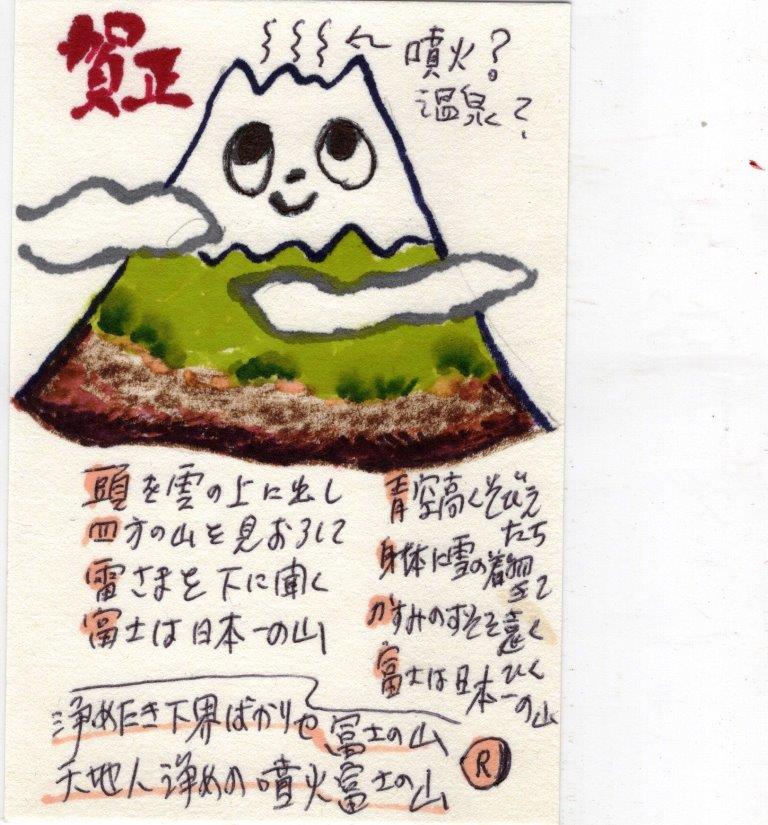 賀正
噴火?
温泉?
頭を雲の上に出し
四方の山を見おろして
雷さまを下に聞く
富士は日本一の山
青空高くそびえ
たち
身体に雪の着物
きて
かすみのすそを遠く
ひく
富士は日本
一の山
浄めたき下界ばかりや富士の山
天地人浄めの噴火富士の山
R